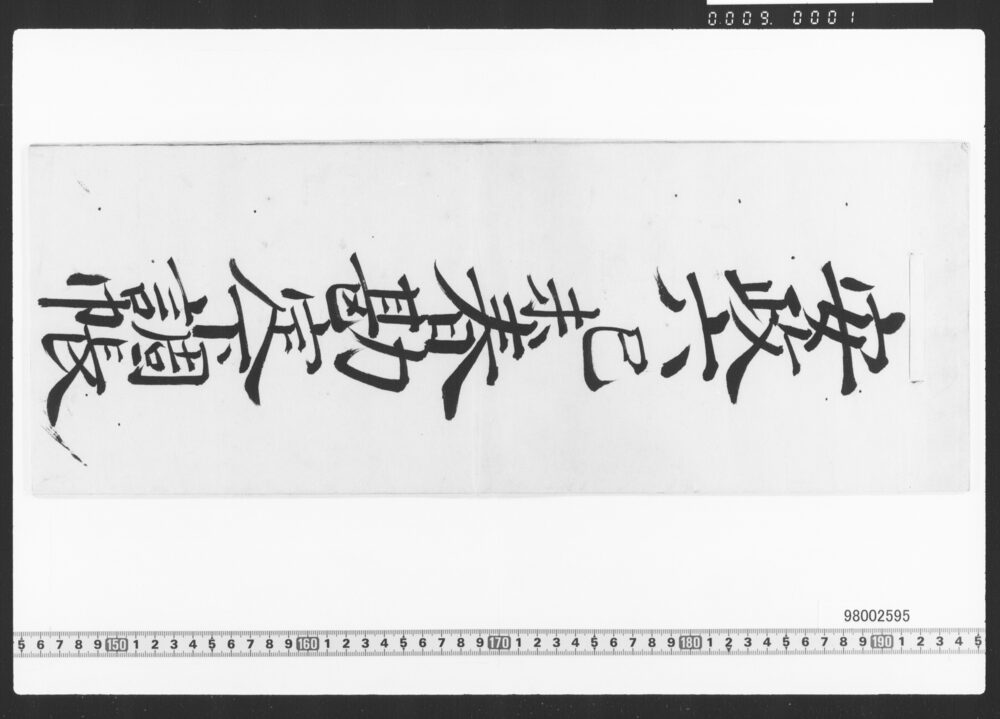 0009. 0001
安政六
己未
春勘定下調帳
98002595
5 6 7 8 9 150 1 2 3 4 5 6 7 8 9 160 1 2 3 4 5 6 7 8 9 170 1 2 3 4 5 6 7 8 9 180 1 2 3 4 5 6 7 8 9 190 1 2 3 4 5